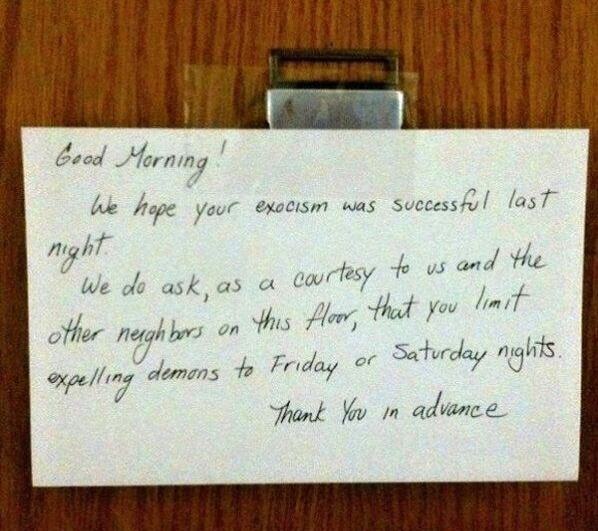 Good Morning!
We hope your exocism was successful last
night.
We do ask, as a courtesy to us and the
other neighbors on this floor, that you limit
expelling demons to Friday or Saturday nights.
Thank You in advance